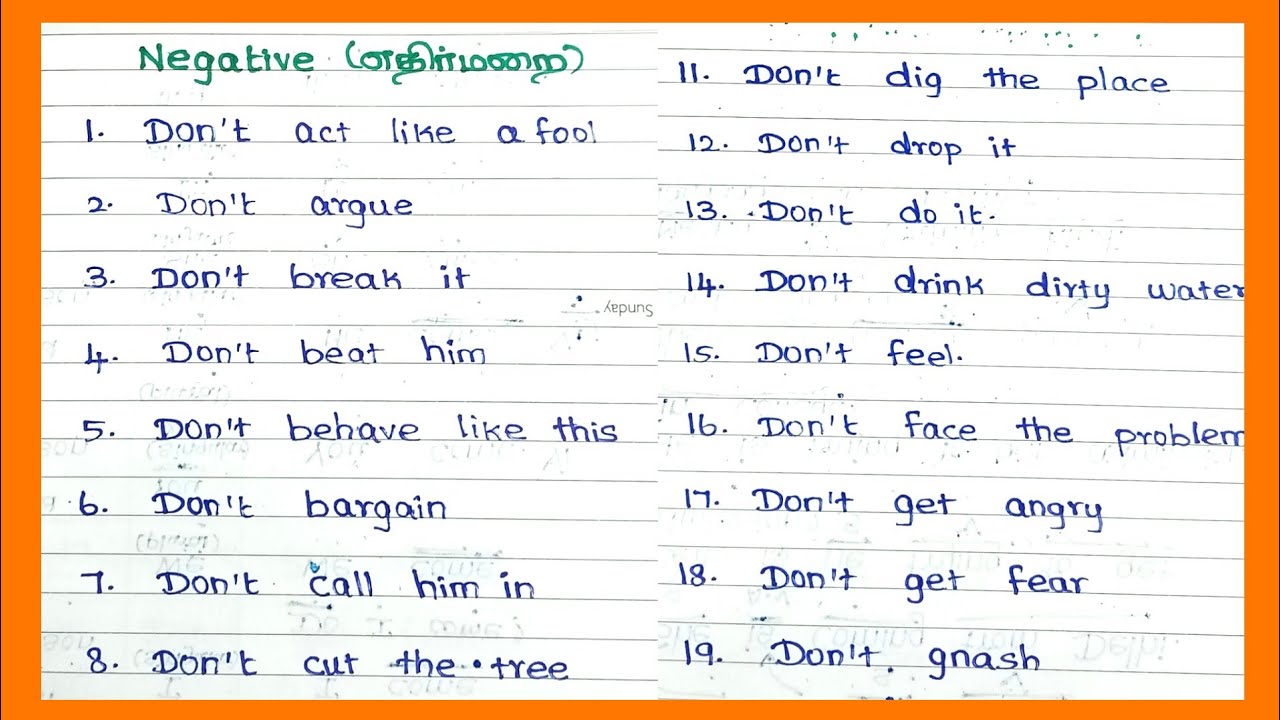 Negative (எதிர்மறை)
1. Don't act like a fool
2. Don't argue
3. Don't break it
4. Don't beat him
5. Don't behave like this
6. Don't bargain
7. Don't call him in
8. Don't cut the tree
Sunday
11. Don't dig the place
12. Don't drop it
13. Don't do it.
14. Don't drink dirty water
15. Don't feel.
16. Don't face the problem
17. Don't get angry
18. Don't get fear
19. Don't gnash